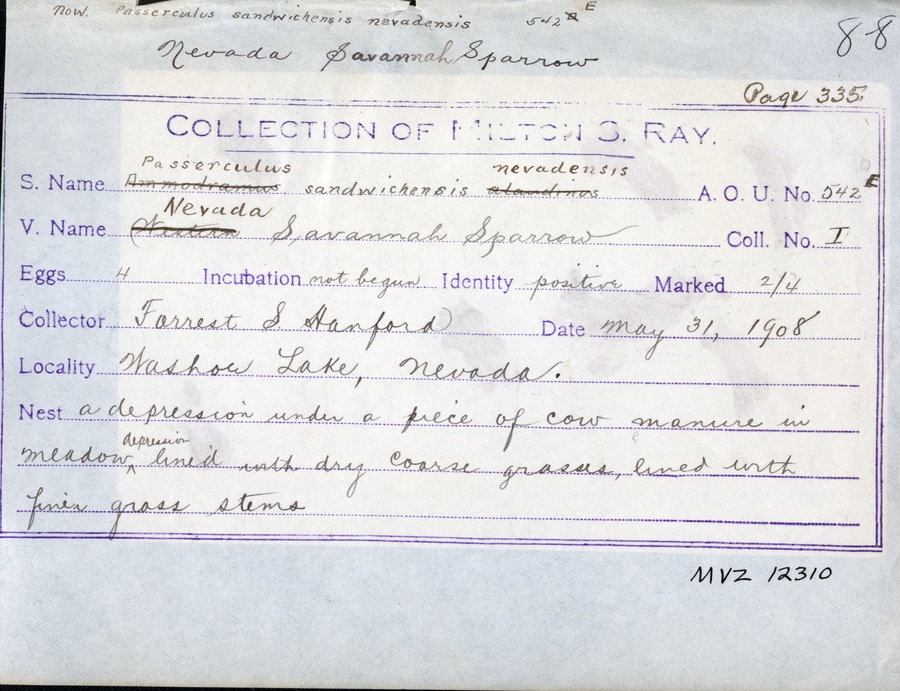 now. Passerculus sandwichensis nevadensis 542 E
Nevada Savannah Sparrow
88
Page 335.
COLLECTION OF MILTON S. RAY.
Passerculus nevadensis
S. Name Ammodramus sandwichensis alaudinus A. O. U. No. 542 E
Nevada
V. Name Western Savannah Sparrow Coll. No. I
Eggs 4 Incubation not begun Identity positive Marked 2/4
Collector Forrest S Hanford Date May 31, 1908
Locality Washoe Lake, Nevada.
Nest a depression under a piece of cow manure in
depression
meadow ^ lined with dry coarse grasses, lined with
finer grass stems
MVZ 12310